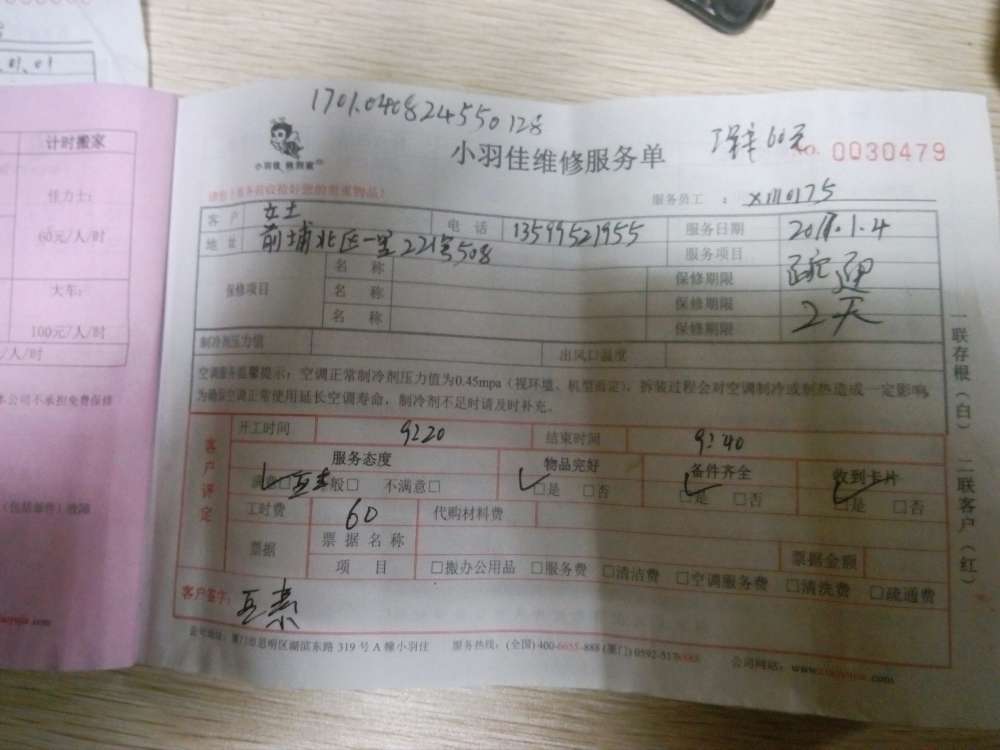 .01.01
计时搬家
佳力士：
60元/人/时
大车：
100元/人/时
/人/时
本公司不承担免费保修
1701040824550128
60元
小羽佳维修服务单
NO. 0030479
服务员工 ： XM0175
客 户 女士 电 话 13599521955 服务日期 2017.1.4
地 址 前埔北区一里221号508 服务项目 疏通
保修项目 名 称 保修期限 2天
名 称 保修期限
名 称 保修期限
制冷剂压力值 出风口温度
空调服务温馨提示：空调正常制冷剂压力值为0.45mpa（视环境、机型而定），拆装过程会对空调制冷或制热造成一定影响，
为确保空调正常使用延长空调寿命，制冷剂不足时请及时补充。
客户评定
开工时间 9:20 结束时间 9:40
服务态度 物品完好 备件齐全 收到卡片
满意□ 一般□ 不满意□ □是 □否 □是 □否 □是 □否
工时费 60 代购材料费
票据 票 据 名 称 票据金额
项 目 □搬办公用品 □服务费 □清洁费 □空调服务费 □清洗费 □疏通费
客户签字：
公司地址：厦门市思明区湖滨东路 319 号 A 幢小羽佳 服务热线：(全国) 400-6655-888 (厦门) 0592-5176885 公司网站：www.
一联存根（白） 二联客户（红）